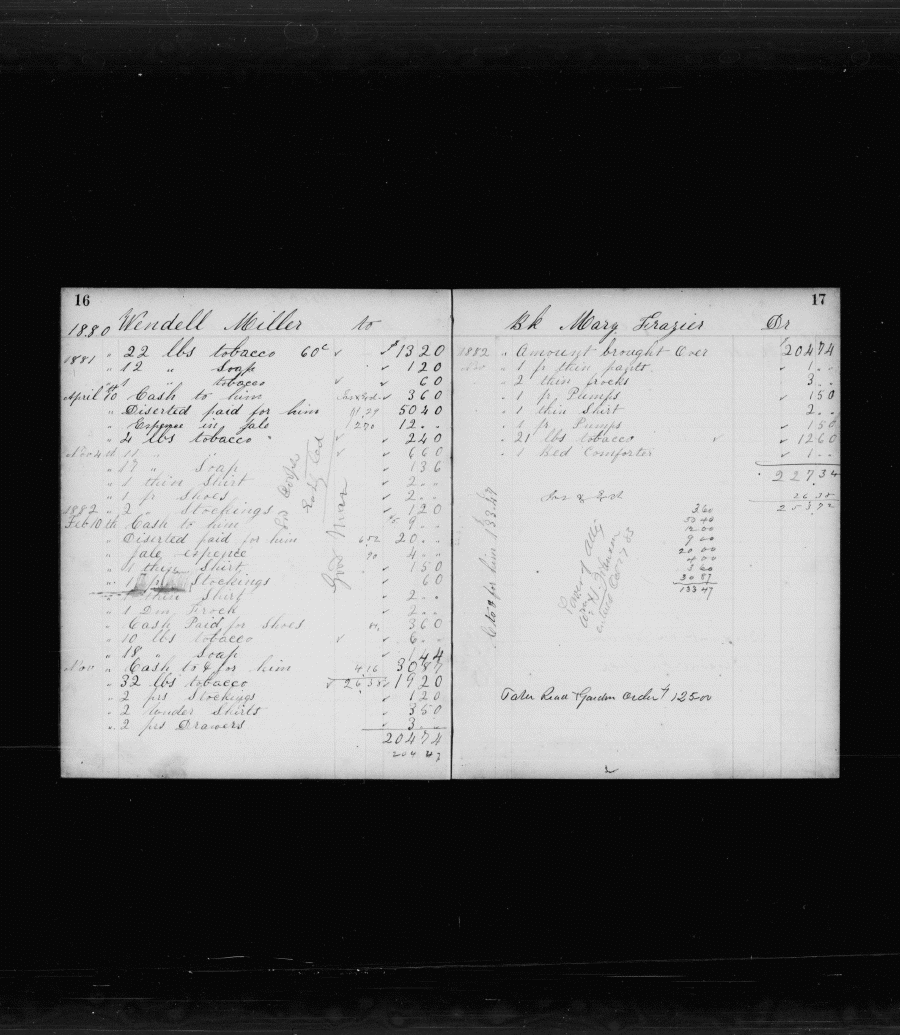 16
1880 Wendell Miller to
1881 " 22 lbs tobacco 60¢ ✓ $1320
" 12 " Soap ✓ 120
" 1 " tobacco ✓ ✓ 60
April 10 " Cash to him Int & Ext ✓ 360
" Diserted paid for him 91.29 5040
" Expense in Jale 270 12 " "
" 4 lbs tobacco " ✓ 240
Nov 4th 11 " " ✓ 660
" 17 " Soap ✓ 136
" 1 thin Shirt ✓ 2 " "
" 1 pr Shoes ✓ 2 " "
1882 " 2 " Stockings ✓ 120
Feb 10th Cash to him 9 " "
" Diserted paid for him 652 20 " "
" Jale expence 90 4 " "
" 1 thin Shirt ✓ 150
" 1 pr Stockings ✓ 60
" thin Shirt ✓ 2 " "
" 1 Dm Frock ✓ 2 " "
" Cash Paid for Shoes 360
" 10 lbs tobacco ✓ ✓ 6 " "
" 18 " Soap ✓ 144
Nov " Cash to & for him 416 3087
" 32 lbs tobacco ✓ 2638 ✓ 1920
" 2 prs Stockings ✓ 120
" 2 under Shirts ✓ 350
" 2 prs Drawers ✓ 3 " "
20474
204 47
Good Man
17
Bk Mary Frazier Dr
1882 " Amount brought Over $20474
Nov " 1 pr thin pants ✓ 1 " "
" 2 thin frocks 3 " "
" 1 pr Pumps ✓ 150
" 1 thin Shirt 2 " "
" 1 pr Pumps ✓ 150
" 21 lbs tobacco ✓ ✓ 1260
" 1 Bed Comforter ✓ 1 " "
22734
2638
25372
Int & Ext
360
5040
1200
900
2000
400
360
3087
13347
Taken Road & Garden Order # 12500